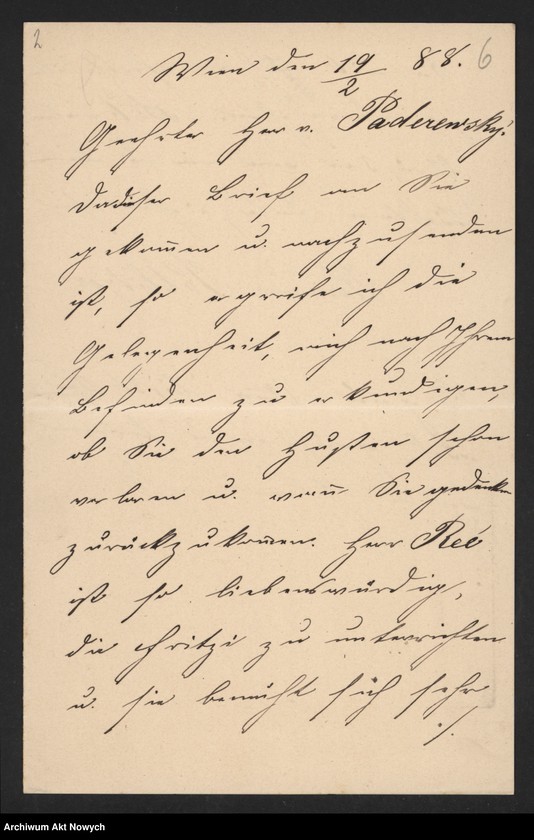 2
6
Wien den 19/2 88.
Geehrter Herr v. Paderewsky!
Da dieser Brief an Sie
gekom̄en u. nachzusenden
ist, so ergreife ich die
Gelegenheit, mich nach Ihrem
Befinden zu erkundigen,
ob Sie den Husten schon
verloren u. wan̄ Sie gedenken
zurückzukom̄en. Herr Reé
ist so liebenswürdig,
die Fritzi zu unterrichten
u. sie bemüht sich sehr
./.
Archiwum Akt Nowych